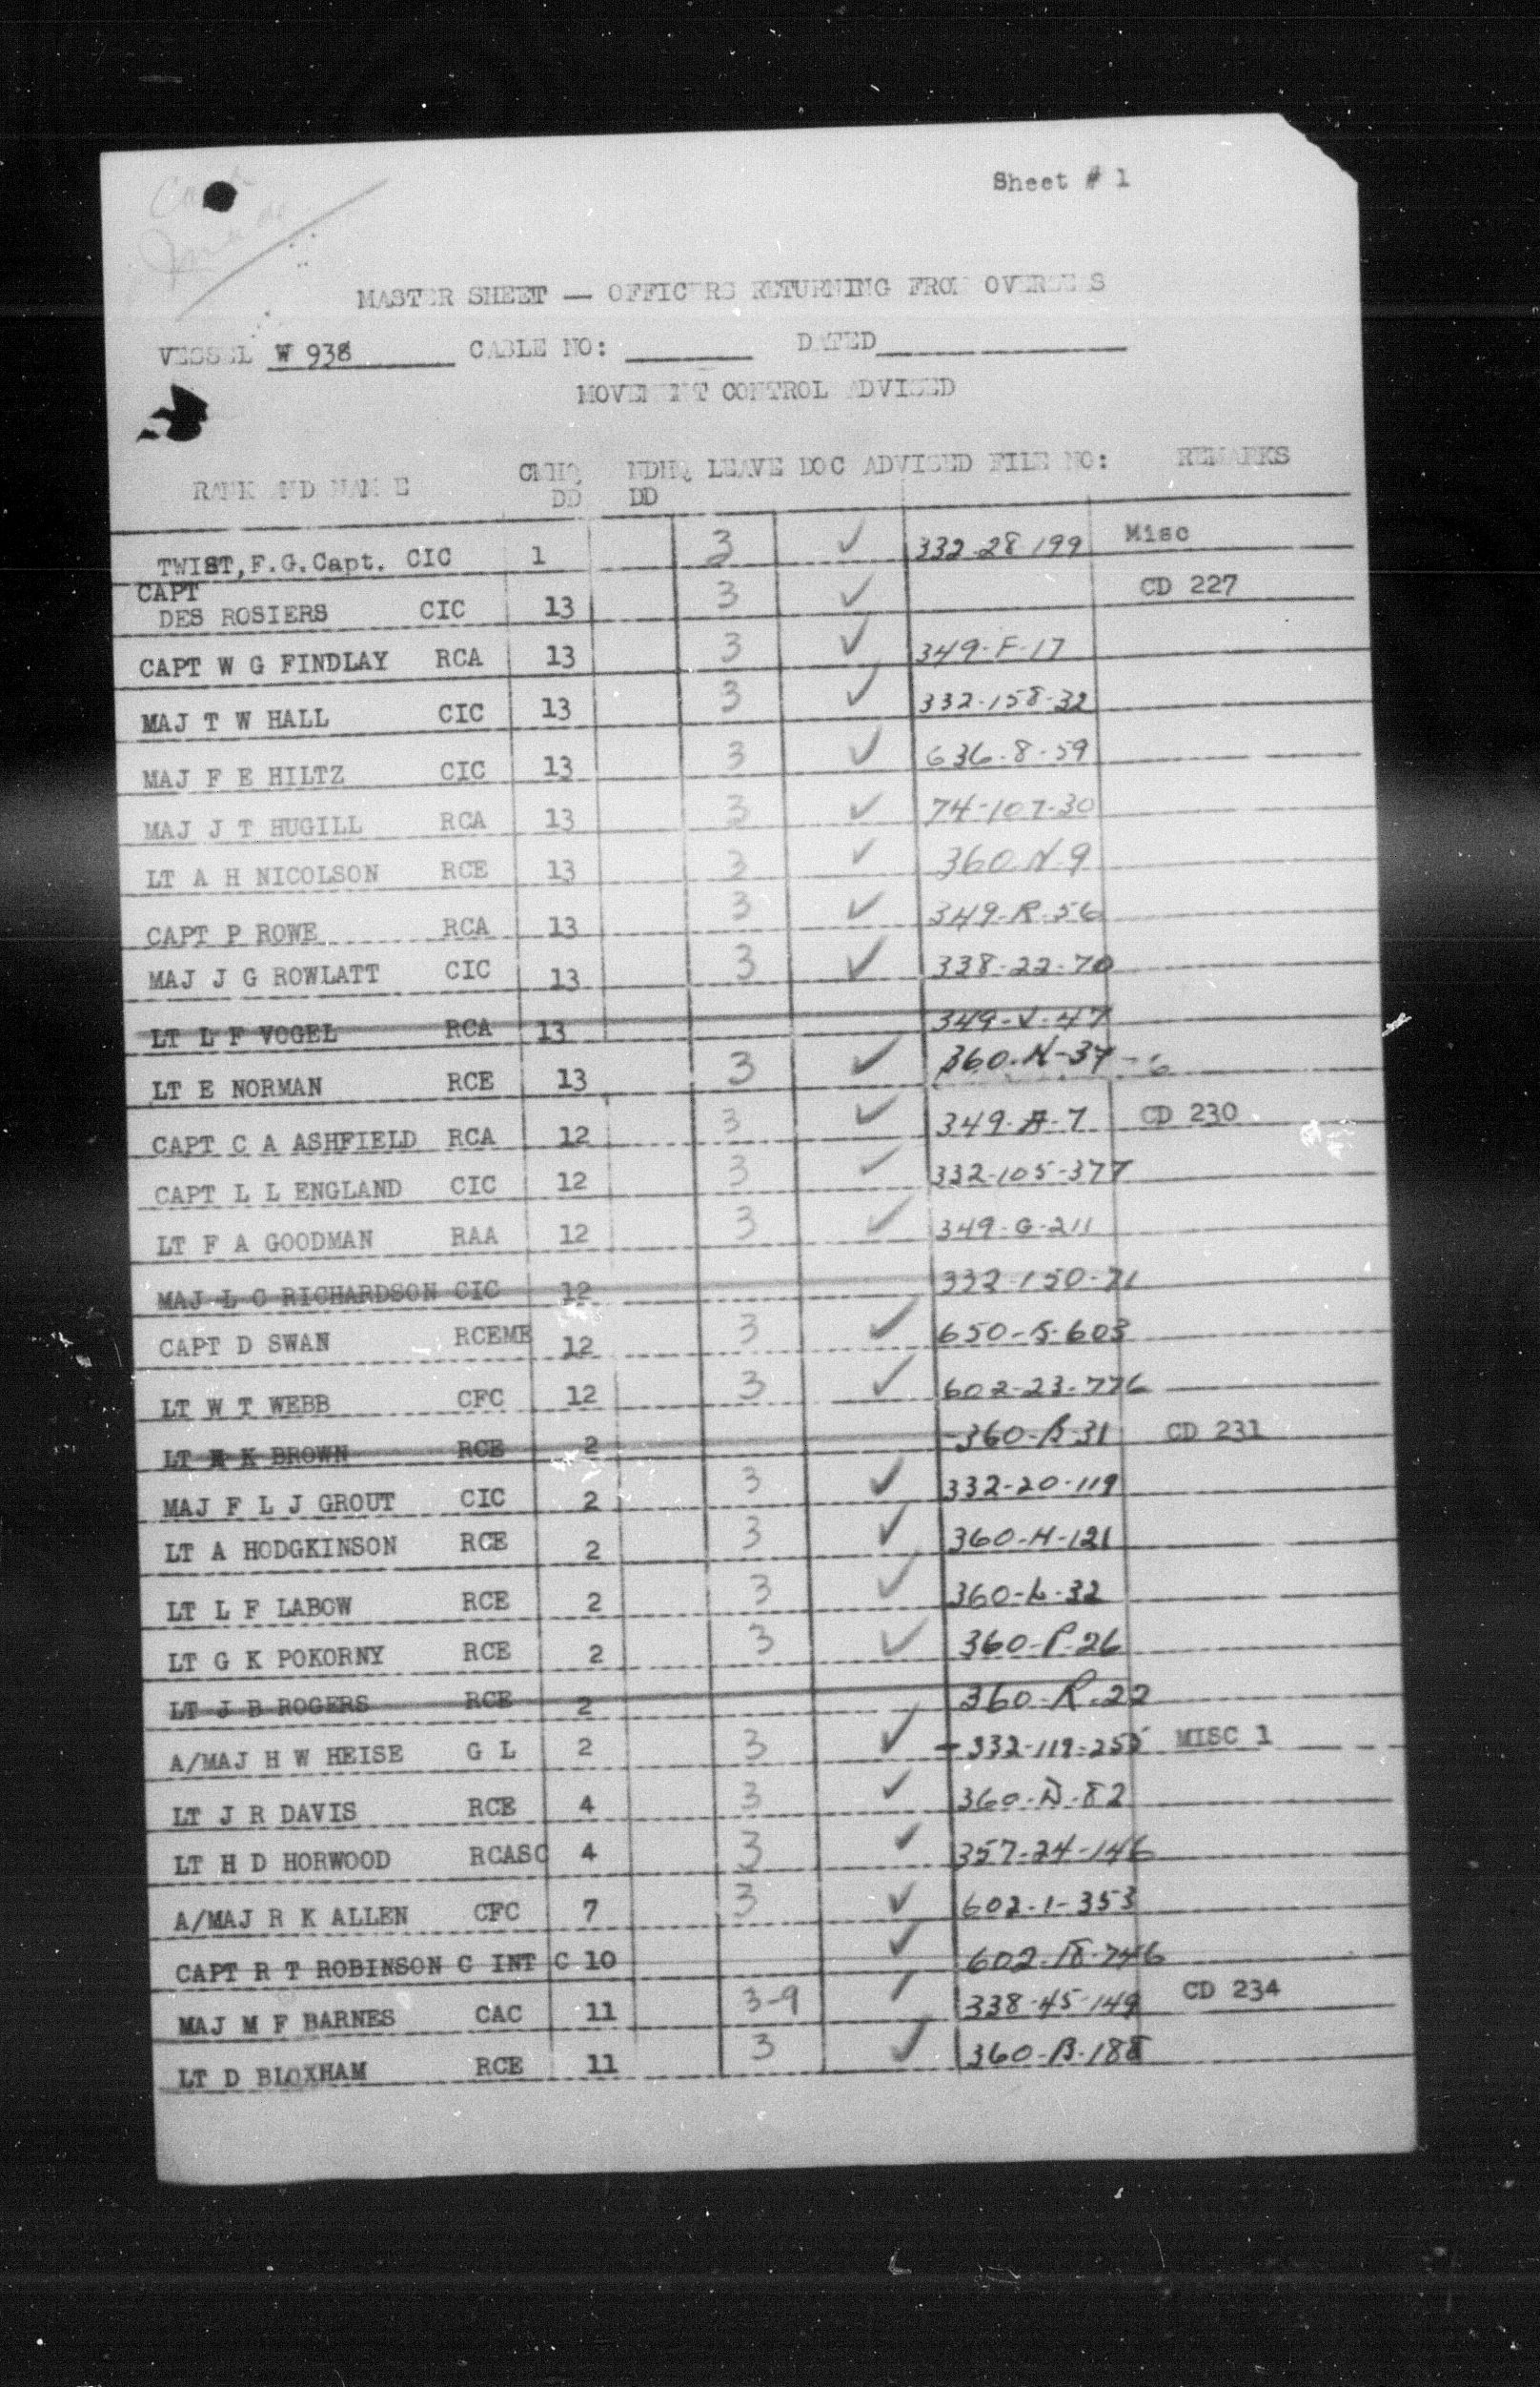 Sheet # 1
MASTER SHEET — OFFICERS RETURNING FROM OVERSEAS
VESSEL W 938 CABLE NO: DATED
MOVEMENT CONTROL ADVISED
RANK AND NAME CMHQ DD NDHQ DD LEAVE DOC ADVISED FILE NO: REMARKS
TWIST, F.G. Capt. CIC 1 3 ✓ 332-28-199 Misc
CAPT
DES ROSIERS CIC 13 3 ✓ CD 227
CAPT W G FINDLAY RCA 13 3 ✓ 349-F-17
MAJ T W HALL CIC 13 3 ✓ 332-158-32
MAJ F E HILTZ CIC 13 3 ✓ 636-8-59
MAJ J T HUGILL RCA 13 3 ✓ 74-107-30
LT A H NICOLSON RCE 13 3 ✓ 360-N-9
CAPT P ROWE RCA 13 3 ✓ 349-R-56
MAJ J G ROWLATT CIC 13 3 ✓ 338-22-70
LT L F VOGEL RCA 13 349-V-47
LT E NORMAN RCE 13 3 ✓ 360-N-37
CAPT C A ASHFIELD RCA 12 3 ✓ 349-A-7 CD 230
CAPT L L ENGLAND CIC 12 3 ✓ 332-105-377
LT F A GOODMAN RAA 12 3 ✓ 349-G-211
MAJ L C RICHARDSON CIC 12 332-150-71
CAPT D SWAN RCEME 12 3 ✓ 650-S-603
LT W T WEBB CFC 12 3 ✓ 602-23-776
LT K BROWN RCE 2 360-B-31 CD 231
MAJ F L J GROUT CIC 2 3 ✓ 332-20-119
LT A HODGKINSON RCE 2 3 ✓ 360-H-121
LT L F LABOW RCE 2 3 ✓ 360-L-32
LT G K POKORNY RCE 2 3 ✓ 360-P-26
LT J B ROGERS RCE 2 360-R-22
A/MAJ H W HEISE G L 2 3 ✓ 332-119-255 MISC 1
LT J R DAVIS RCE 4 3 ✓ 360-D-82
LT H D HORWOOD RCASC 4 3 ✓ 357-24-146
A/MAJ R K ALLEN CFC 7 3 ✓ 602-1-353
CAPT R T ROBINSON C INT C 10 ✓ 602-18-746
MAJ M F BARNES CAC 11 3-9 ✓ 338-45-149 CD 234
LT D BLOXHAM RCE 11 3 ✓ 360-B-188